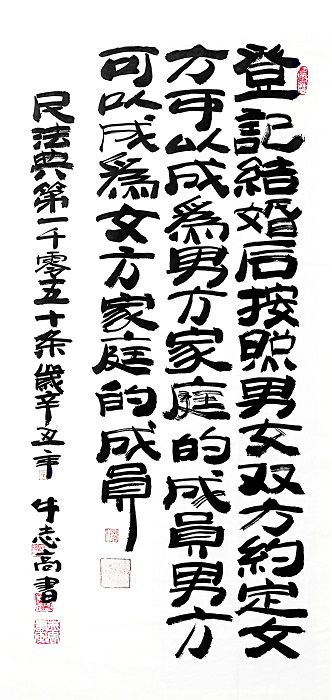 登記結婚后按照男女双方約定女
方可以成爲男方家庭的成員男方
可以成爲女方家庭的成員
民法典第一千零五十条歲辛丑年 牛志高書